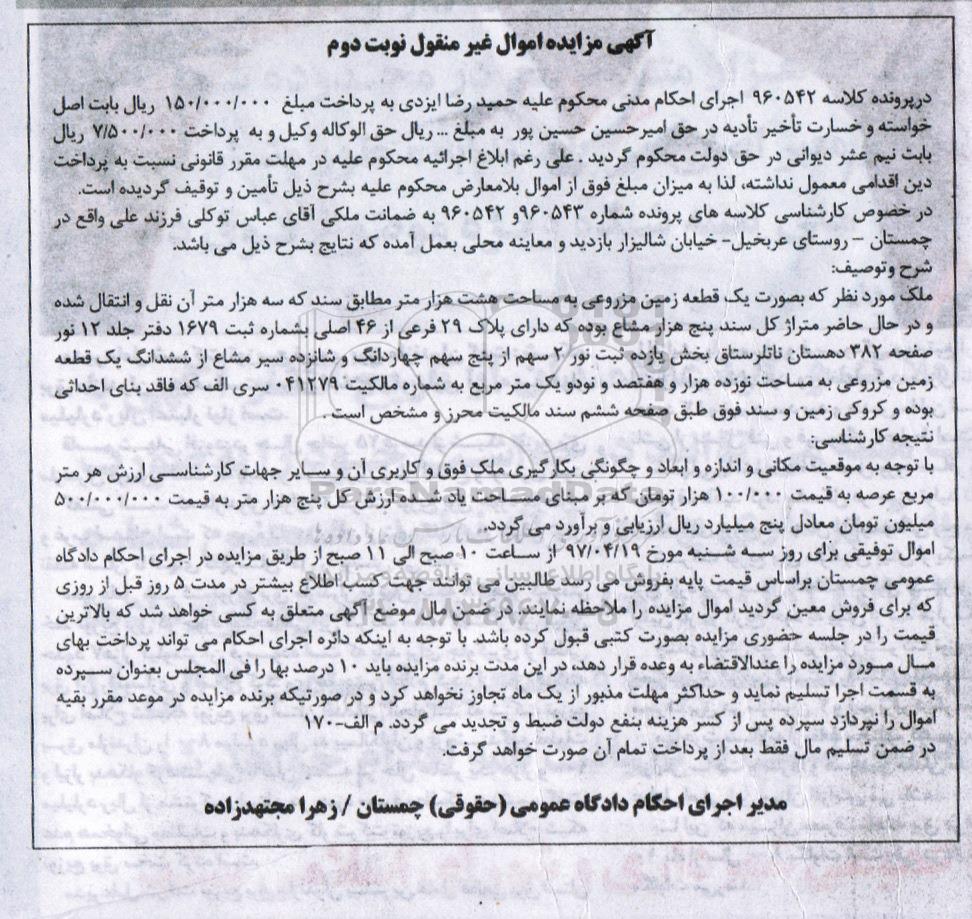 آگهی مزایده اموال غیر منقول نوبت دوم
درپرونده کلاسه ۹۶۰۵۴۲ اجرای احکام مدنی محکوم علیه حمید رضا ایزدی به پرداخت مبلغ ۱۵۰/۰۰۰/۰۰۰ ریال بابت اصل
خواسته و خسارت تأخیر تأدیه در حق امیرحسین حسین پور به مبلغ ... ریال حق الوکاله وکیل و به پرداخت ۷/۵۰۰/۰۰۰ ریال
بابت نیم عشر دیوانی در حق دولت محکوم گردید . علی رغم ابلاغ اجرائیه محکوم علیه در مهلت مقرر قانونی نسبت به پرداخت
دین اقدامی معمول نداشته، لذا به میزان مبلغ فوق از اموال بلامعارض محکوم علیه بشرح ذیل تأمین و توقیف گردیده است.
در خصوص کارشناسی کلاسه های پرونده شماره ۹۶۰۵۴۳و ۹۶۰۵۴۲ به ضمانت ملکی آقای عباس توکلی فرزند علی واقع در
چمستان – روستای عربخیل- خیابان شالیزار بازدید و معاینه محلی بعمل آمده که نتایج بشرح ذیل می باشد.
شرح وتوصیف:
ملک مورد نظر که بصورت یک قطعه زمین مزروعی به مساحت هشت هزار متر مطابق سند که سه هزار متر آن نقل و انتقال شده
و در حال حاضر متراژ کل سند پنج هزار مشاع بوده که دارای پلاک ۲۹ فرعی از ۴۶ اصلی بشماره ثبت ۱۶۷۹ دفتر جلد ۱۲ نور
صفحه ۳۸۲ دهستان ناتلرستاق بخش یازده ثبت نور ۲ سهم از پنج سهم چهاردانگ و شانزده سیر مشاع از ششدانگ یک قطعه
زمین مزروعی به مساحت نوزده هزار و هفتصد و نودو یک متر مربع به شماره مالکیت ۰۴۱۲۷۹ سری الف که فاقد بنای احداثی
بوده و کروکی زمین و سند فوق طبق صفحه ششم سند مالکیت محرز و مشخص است .
نتیجه کارشناسی:
با توجه به موقعیت مکانی و اندازه و ابعاد و چگونگی بکارگیری ملک فوق و کاربری آن و سایر جهات کارشناسی ارزش هر متر
مربع عرصه به قیمت ۱۰۰/۰۰۰ هزار تومان که بر مبنای مساحت یاد شده ارزش کل پنج هزار متر به قیمت ۵۰۰/۰۰۰/۰۰۰
میلیون تومان معادل پنج میلیارد ریال ارزیابی و برآورد می گردد.
اموال توقیفی برای روز سه شنبه مورخ ۹۷/۰۴/۱۹ از ساعت ۱۰ صبح الی ۱۱ صبح از طریق مزایده در اجرای احکام دادگاه
عمومی چمستان براساس قیمت پایه بفروش می رسد طالبین می توانند جهت کسب اطلاع بیشتر در مدت ۵ روز قبل از روزی
که برای فروش معین گردید اموال مزایده را ملاحظه نمایند. در ضمن مال موضع آگهی متعلق به کسی خواهد شد که بالاترین
قیمت را در جلسه حضوری مزایده بصورت کتبی قبول کرده باشد. با توجه به اینکه دائره اجرای احکام می تواند پرداخت بهای
مال مورد مزایده را عندالاقتضاء به وعده قرار دهد، در این مدت برنده مزایده باید ۱۰ درصد بها را فی المجلس بعنوان سپرده
به قسمت اجرا تسلیم نماید و حداکثر مهلت مذبور از یک ماه تجاوز نخواهد کرد و در صورتیکه برنده مزایده در موعد مقرر بقیه
اموال را نپردازد سپرده پس از کسر هزینه بنفع دولت ضبط و تجدید می گردد. م الف-۱۷۰
در ضمن تسلیم مال فقط بعد از پرداخت تمام آن صورت خواهد گرفت.
مدیر اجرای احکام دادگاه عمومی (حقوقی) چمستان / زهرا مجتهدزاده